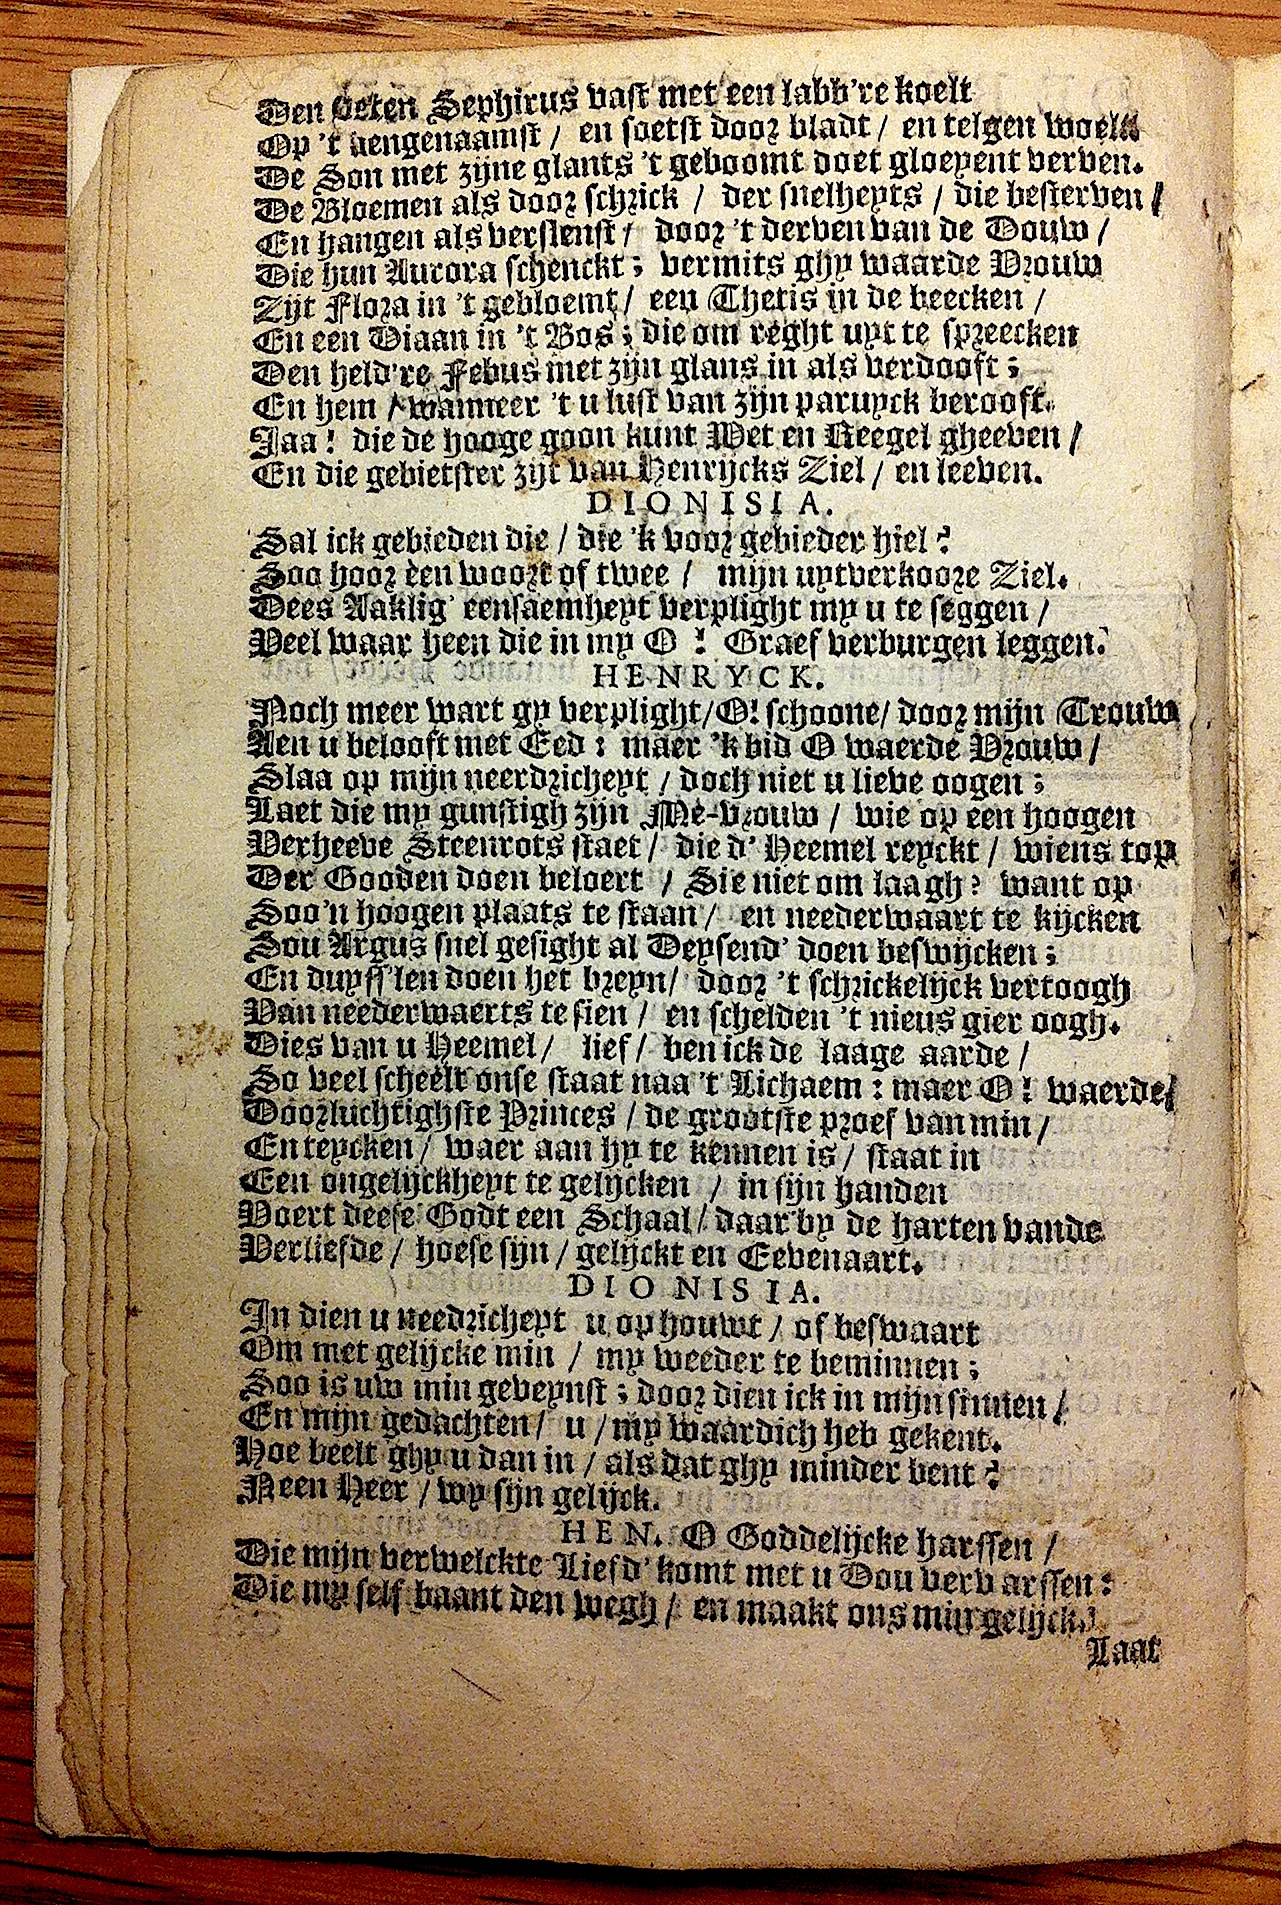 Den soeten Sephirus vast met een labb're koelt
Op 't aengenaamst / en soetst door bladt / en telgen woelt
De Son met zijne glants 't geboomt doet gloeyent verven.
De Bloemen als door schrick / der snelheyts / die besterven /
En hangen als verslenst / door 't derven van de Douw /
Die hun Aurora schenckt ; vermits ghy waarde Vrouw
Zijt Flora in 't gebloemt / een Thetis in de beecken /
En een Diaan in 't Bos ; die om reght uyt te spreecken
Den held're Febus met zijn glans in als verdooft ;
En hem / wanneer 't u lust van zijn paruyck berooft.
Jaa ! die de hooge goon kunt Wet en Reegel gheeven /
En die gebietster zijt van Henrijcks Ziel / en leeven.
DIONISIA.
Sal ick gebieden die / die 'k voor gebieder hiel ?
Soo hoor èen woort of twee / mijn uytverkoore Ziel.
Dees Aaklig' eensaemheyt verplight my u te seggen /
Veel waar heen die in my O ! Graef verburgen leggen.
HENRYCK.
Noch meer wart gy verplight / O! schoone / door mijn Trouw
Aen u belooft met Eed : maer 'k bid O waerde Vrouw /
Slaa op mijn neerdricheyt / doch niet u lieve oogen ;
Laet die my gunstigh zijn Me-vrouw / wie op een hoogen
Verheeve Steenrots staet / die d' Heemel reyckt / wiens top
Der Gooden doen beloert / Sie niet om laagh ? want op
Soo'n hoogen plaats te staan / en neederwaart te kijcken
Sou Argus snel gesight al Deysend' doen beswijcken ;
En duyss'len doen het breyn / door 't schrickelijck vertoogh
Van neederwaerts te sien / en schelden 't nieus gier oogh.
Dies van u Heemel / lief / ben ick de laage aarde /
So veel scheelt onse staat naa 't Lichaem : maer O ! waerde /
Doorluchtighste Princes / de grootste proef van min /
En teycken / waer aan hy te kennen is / staat in
Een ongelijckheyt te gelijcken / in sijn handen
Voert deese Godt een Schaal / daar by de harten vande
Verliefde / hoese sijn / gelijckt en Eevenaart.
DIONISIA.
In dien u needricheyt u ophouwt / of beswaart
Om met gelijcke min / my weeder te beminnen ;
Soo is uw min geveynst ; door dien ick in mijn sinnen /
En mijn gedachten / u / my waardich heb gekent.
Hoe beelt ghy u dan in / als dat ghy minder bent ?
Neen Heer / wy sijn gelijck.
HEN. O Goddelijcke harssen /
Die mijn verwelckte Liefd' komt met u Dou ververssen :
Die my self baant den wegh / en maakt ons min gelijck.
Laat